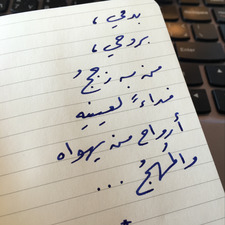 بدمي ،
بروحي ،
من به زججُ
فداءً لعينيه
أرواح من يهواه
والمُهجُ ...